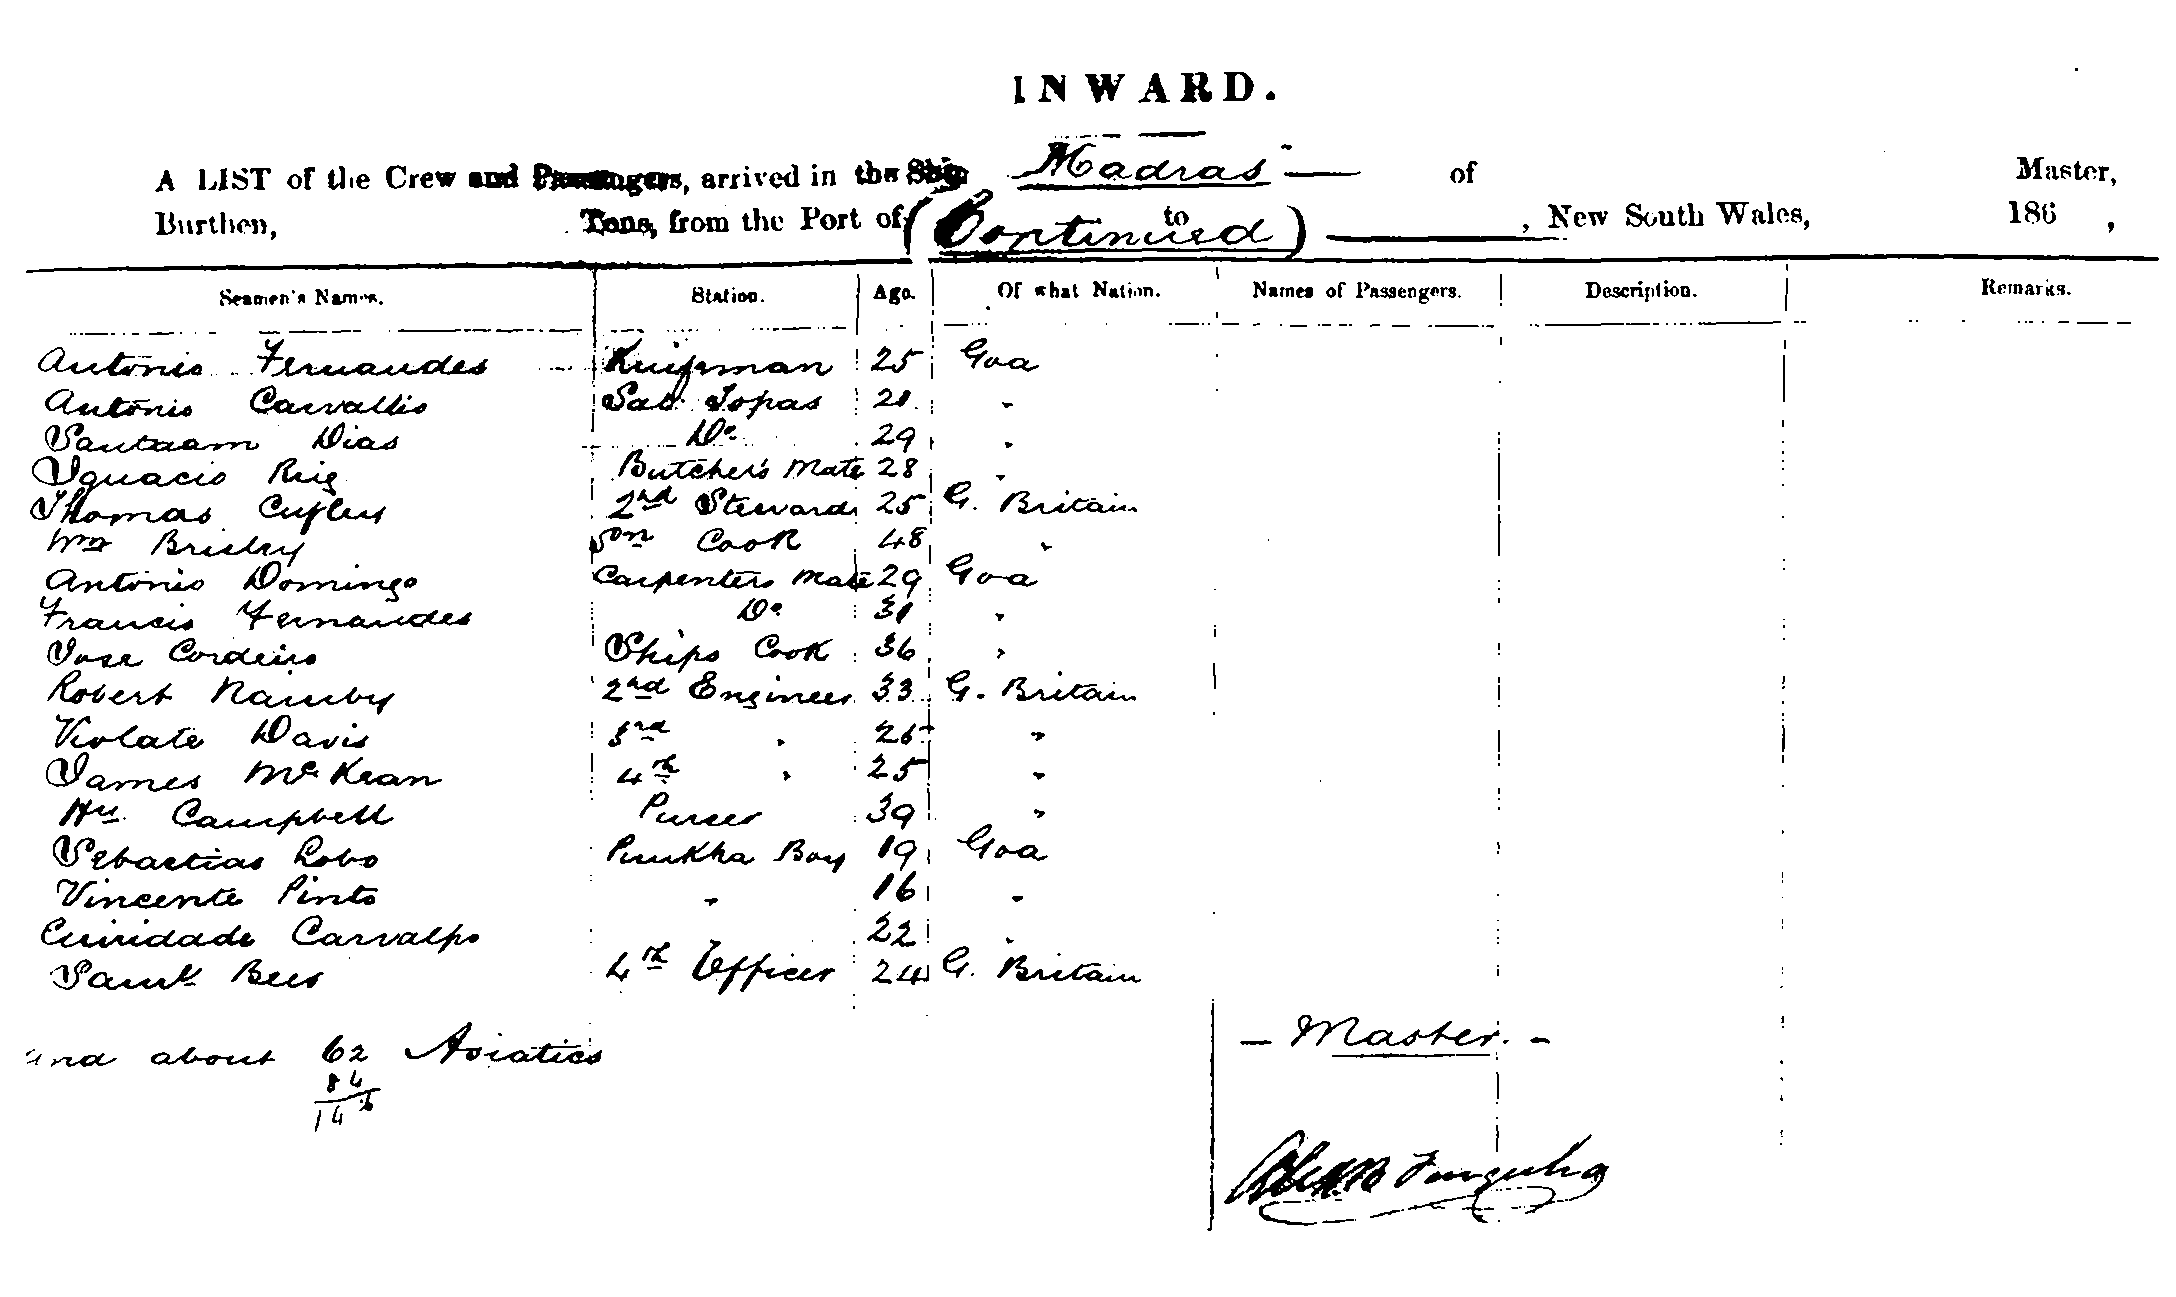 INWARD.
A LIST of the Crew and Passengers, arrived in the Ship Madras — of Master,
Burthen, Tons, from the Port of (Continued) to , New South Wales, 186 ,
Seamen's Names. Station. Age. Of what Nation. Names of Passengers. Description. Remarks.
Antonio Fernandes Knifeman 25 Goa
Antonio Carvalho Sab Topas 21 "
Dias Do 29 "
Ignacio Butcher's Mate 28 "
Thomas 2nd Steward 25 G. Britain
Wm Cook 48 "
Antonio Domingo Carpenters Mate 29 Goa
Francis Fernandes Do 31 "
Jose Cordeiro Ships Cook 36 "
Robert 2nd Engineer 33 G. Britain
Violate Davis 3rd " "
James McKean 4th " 25 "
Campbell Purser 39 "
Sebastiao Lobo Punkha Boy 19 Goa
Vincente Pinto " 16 "
Carvalho 22 "
Saml Bees 4th Officer 24 G. Britain
and about 62 Asiatics
84
146
— Master. —